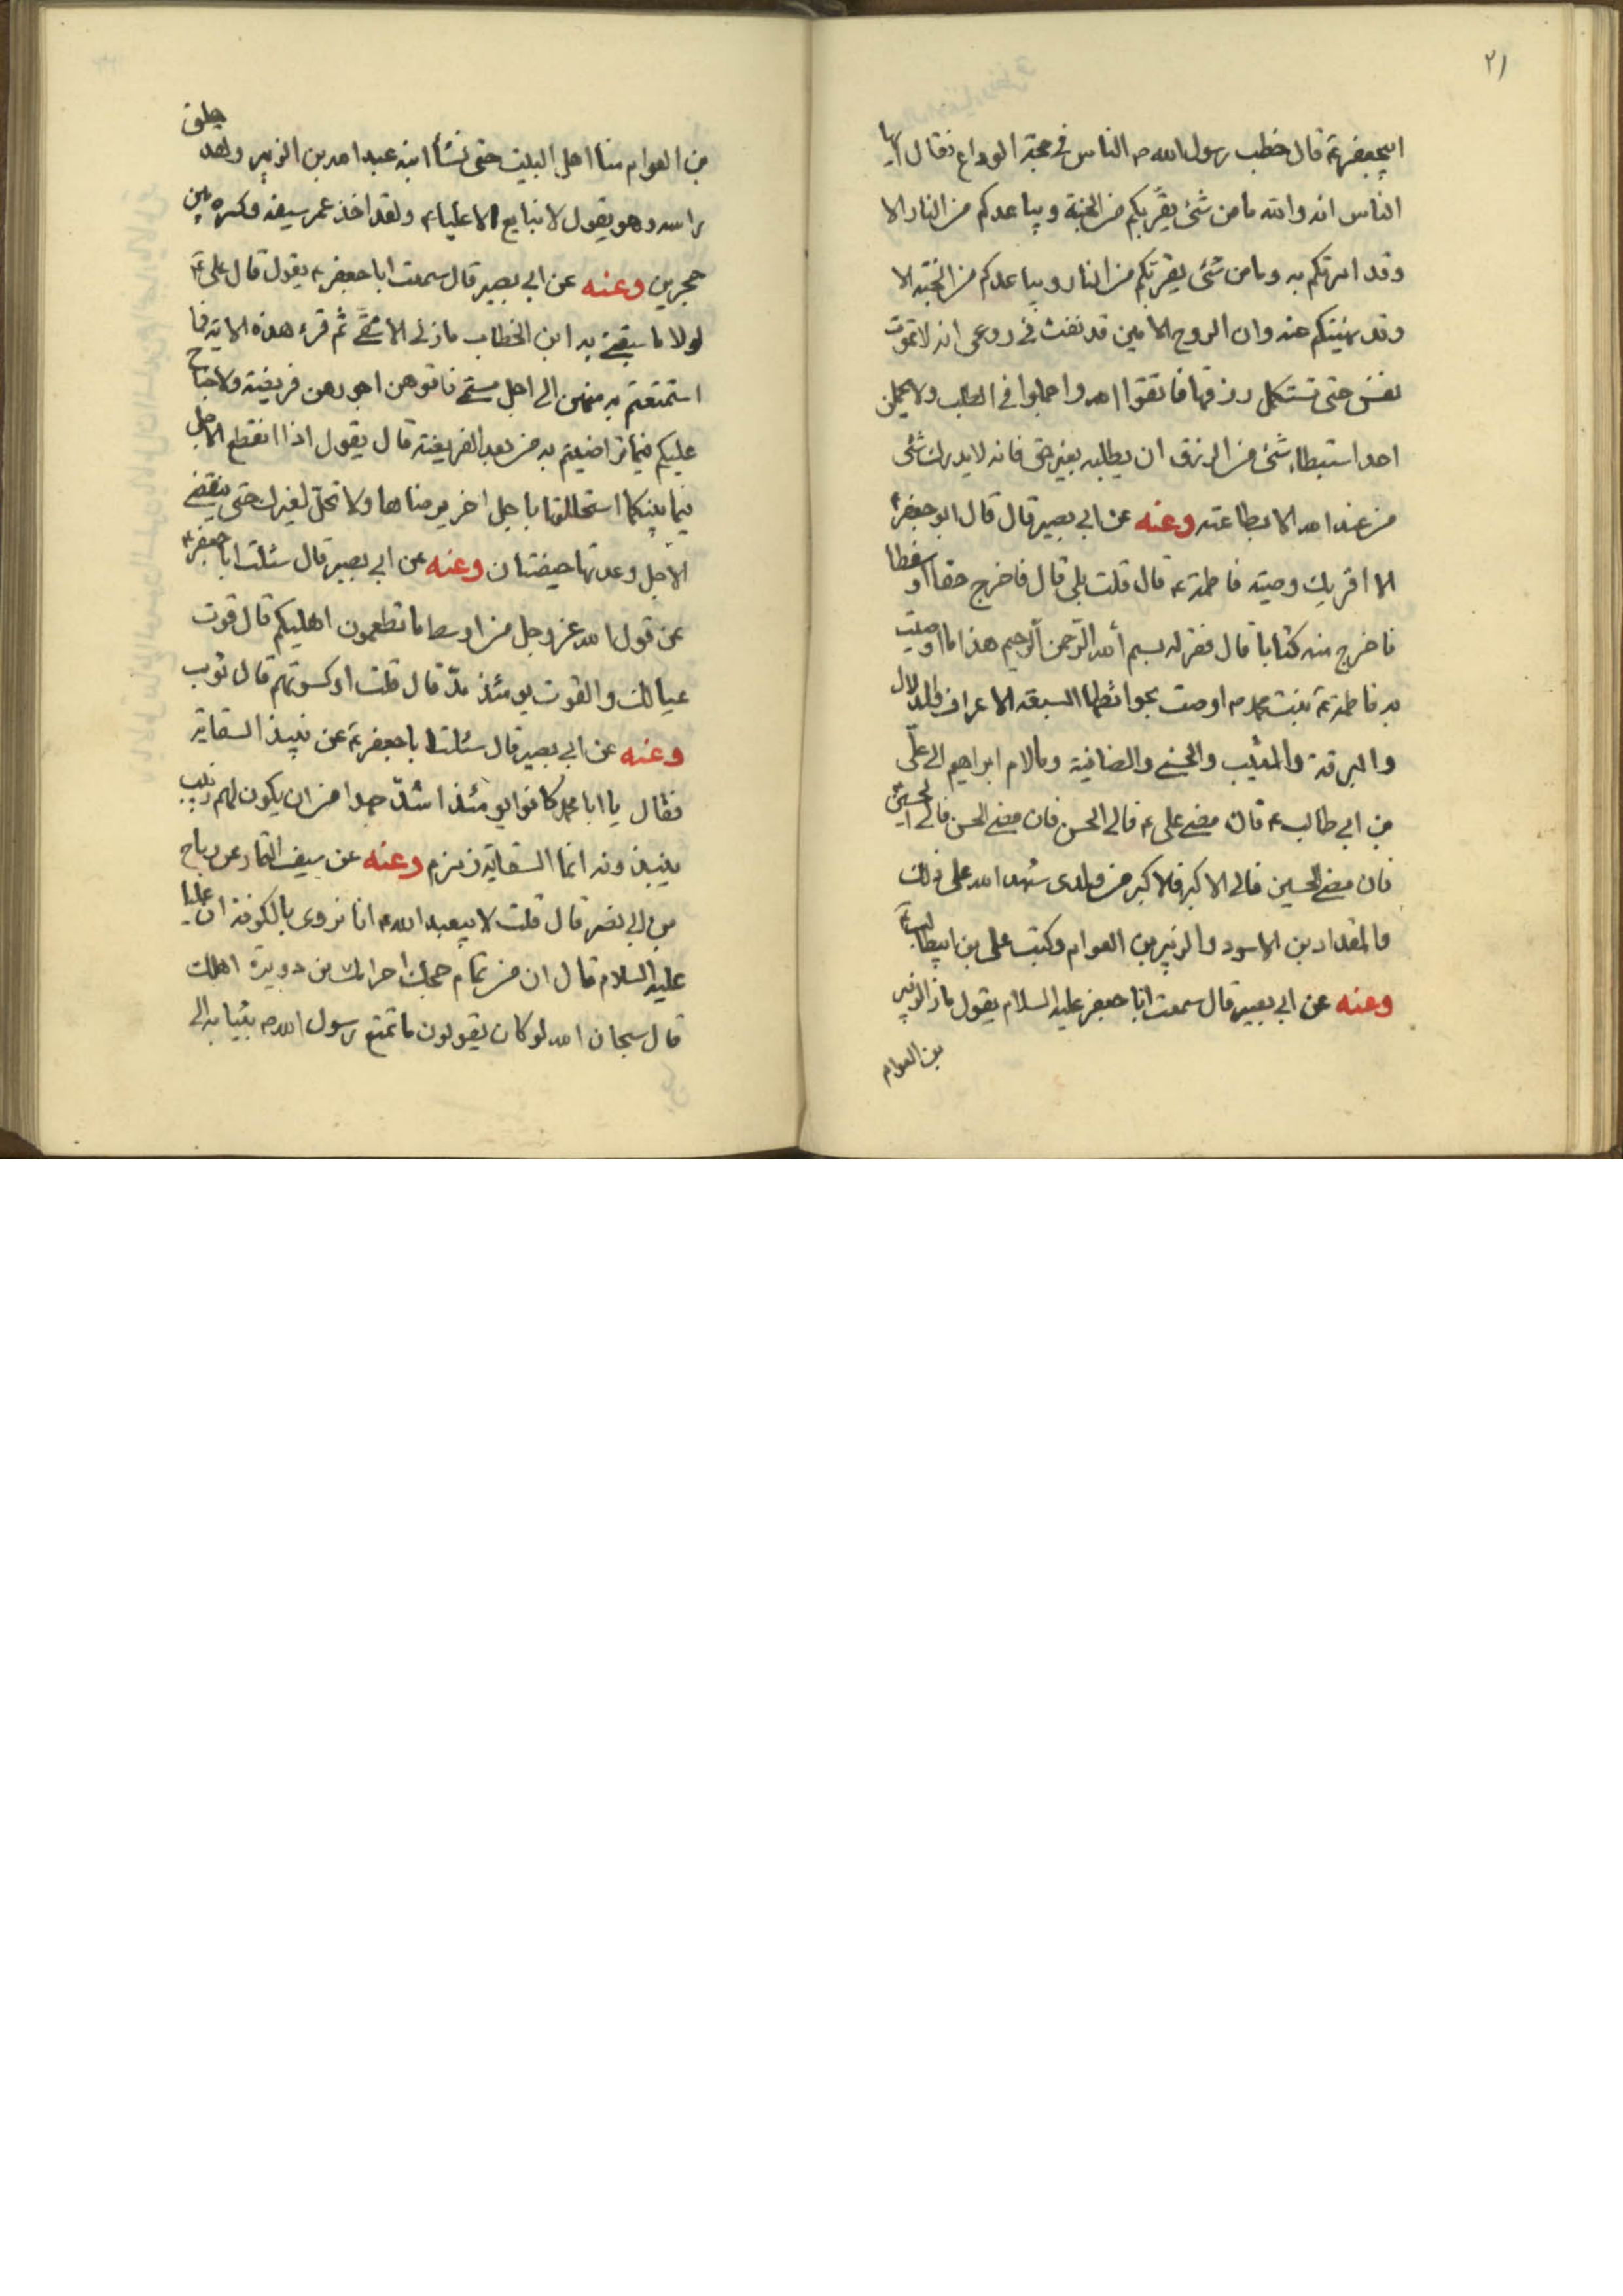 ٢١
ابيجعفر ع قال خطب رسول الله ص الناس في حجة الوداع فقال ايها
الناس انه والله ما من شئ يقربكم من الجنة ويباعدكم من النار الا
وقد امرتكم به وما من شئ يقربكم من النار ويباعدكم من الجنة الا
وقد نهيتكم عنه وان الروح الامين قد نفث في روعى انه لا تموت
نفس حتى تستكمل رزقها فاتقوا الله واجملوا في الطلب ولا يحملن
احد استبطاء شئ من الرزق ان يطلبه بغير حق فانه لا يدرك شئ
من عند الله الا بطاعته وعنه عن ابي بصير قال قال ابو جعفر ع
الا اقريك وصية فاطمة ع قال قلت بلى قال فاخرج حقا او سفطا
فاخرج منه كتابا قال فقرله بسم الله الرحمن الرحيم هذا ما اوصيت
به فاطمة ع بنت محمد ص اوصت بحوائطها السبعة الاعراف والدلال
والبرقة والمثيب والحسنى والصافية ومالام ابراهيم الى على
بن ابي طالب ع قال مضى على ع فالى الحسن فان مضى الحسن فالى الحسين ع
فان مضى الحسين فالى الاكبر فلاكبر من ولدى شهد الله على ذلك
والمقداد بن الاسود والزبير بن العوام وكتب على بن ابيطالب ع
وعنه عن ابي بصير قال سمعت ابا جعفر عليه السلام يقول ما زال الزبير
بن العوام
بن العوام منا اهل البيت حتى نشأ ابنه عبد الله بن الزبير ولقد حلق
راسه وهو يقول لا نبايع الا عليا ع ولقد اخذ عمر سيفه فكسره بين
حجرين وعنه عن ابي بصير قال سمعت ابا جعفر ع يقول قال على ع
لولا ما سبقنى به ابن الخطاب ما زنى الا شقى ثم قرء هذه الاية فما
استمتعتم به منهن الى اجل مسمى فاتوهن اجورهن فريضة ولا جناح
عليكم فيما تراضيتم به من بعد الفريضة قال يقول اذا انقطع الاجل
فيما بينكما استحللتها باجل اخر يرضاها ولا تحل لغيرك حتى ينقضى
الاجل وعدتها حيضتان وعنه عن ابي بصير قال سئلت ابا جعفر ع
عن قول الله عز وجل من اوسط ما تطعمون اهليكم قال قوت
عيالك والقوت يومئذ مد قال قلت او كسوتهم قال ثوب
وعنه عن ابي بصير قال سئلت ابا جعفر ع عن نبيذ السقاية
فقال يا ابا محمد كانوا يومئذ اشد جهدا من ان يكون لهم زبيب
ينبذونه انما السقاية زمزم وعنه عن سيف التمار عن رباح
بن ابي نصر قال قلت لابيعبد الله ع انا نروى بالكوفة ان عليا
عليه السلام قال ان من تمام حجك احرامك من دويرة اهلك
قال سبحان الله لو كان يقولون ما تمتع رسول الله ص بثيابه الى